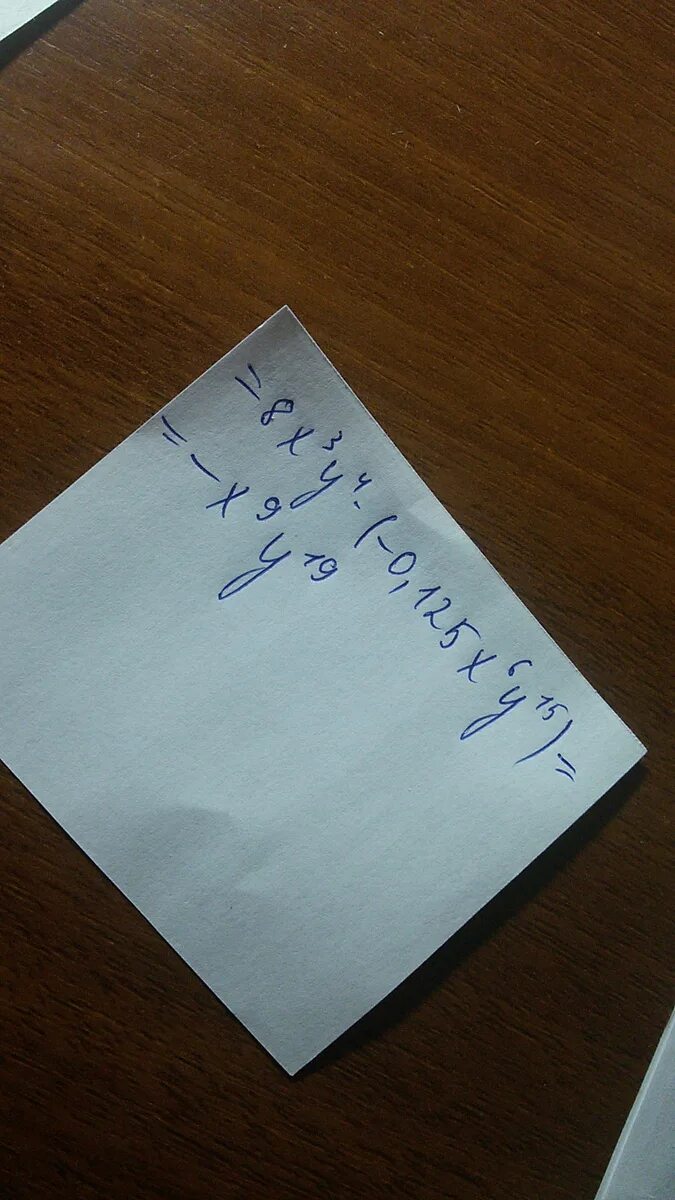 = 8x³y⁴·(-0,125x⁶y¹⁵) =
= -x⁹y¹⁹